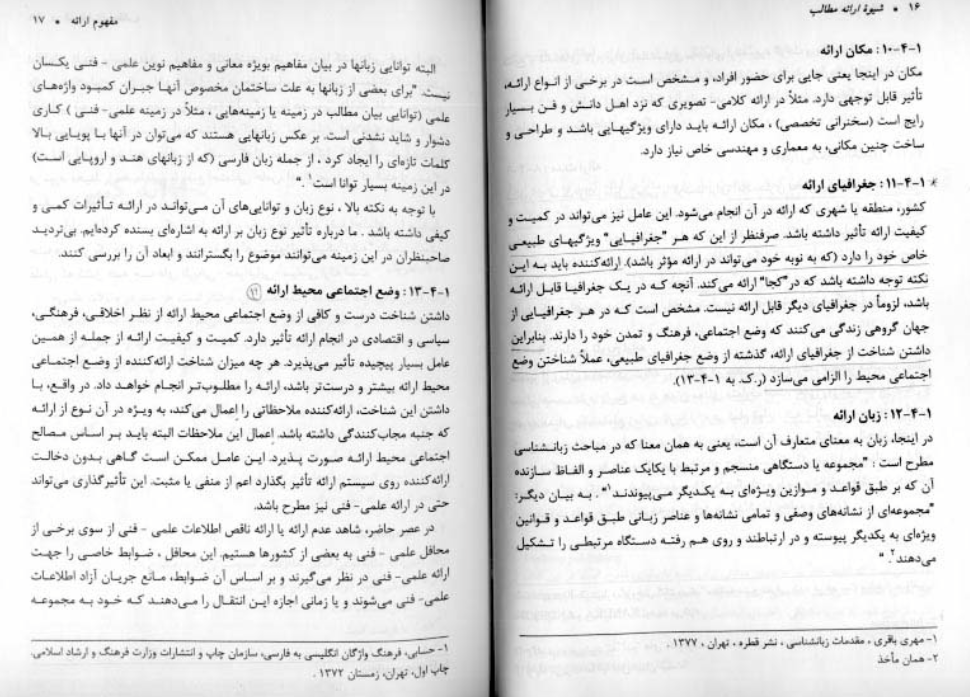 ۱۶ • شیوۀ ارائه مطالب
۱-۴-۱۰: مکان ارائه
مکان در اینجا یعنی جایی برای حضور افراد، و مشخص است در برخی از انواع ارائه،
تأثیر قابل توجهی دارد. مثلاً در ارائه کلامی- تصویری که نزد اهل دانش و فن بسیار
رایج است (سخنرانی تخصصی) ، مکان ارائه باید دارای ویژگیهایی باشد و طراحی و
ساخت چنین مکانی، به معماری و مهندسی خاص نیاز دارد.
* ۱-۴-۱۱: جغرافیای ارائه
کشور، منطقه یا شهری که ارائه در آن انجام می‌شود. این عامل نیز می‌تواند در کمیت و
کیفیت ارائه تأثیر داشته باشد. صرفنظر از این که هر "جغرافیایی" ویژگیهای طبیعی
خاص خود را دارد (که به نوبه خود می‌تواند در ارائه مؤثر باشد). ارائه‌کننده باید به این
نکته توجه داشته باشد که در"کجا" ارائه می‌کند. آنچه که در یک جغرافیا قابل ارائه
باشد، لزوماً در جغرافیای دیگر قابل ارائه نیست. مشخص است که در هر جغرافیایی از
جهان گروهی زندگی می‌کنند که وضع اجتماعی، فرهنگ و تمدن خود را دارند. بنابراین
داشتن شناخت از جغرافیای ارائه، گذشته از وضع جغرافیای طبیعی، عملاً شناختن وضع
اجتماعی محیط را الزامی می‌سازد (ر.ک. به ۱-۴-۱۳).
۱-۴-۱۲: زبان ارائه
در اینجا، زبان به معنای متعارف آن است، یعنی به همان معنا که در مباحث زبانشناسی
مطرح است : "مجموعه یا دستگاهی منسجم و مرتبط با یکایک عناصر و الفاظ سازنده
آن که بر طبق قواعد و موازین ویژه‌ای به یکدیگر می‌پیوندند۱" . به بیان دیگر:
"مجموعه‌ای از نشانه‌های وصفی و تمامی نشانه‌ها و عناصر زبانی طبق قواعد و قوانین
ویژه‌ای به یکدیگر پیوسته و در ارتباطند و روی هم رفته دستگاه مرتبطی را تشکیل
می‌دهند۲."
۱- مهری باقری ، مقدمات زبانشناسی ، نشر قطره ، تهران ، ۱۳۷۷.
۲- همان مأخذ
مفهوم ارائه • ۱۷
البته توانایی زبانها در بیان مفاهیم بویژه معانی و مفاهیم نوین علمی - فنی یکسان
نیست. "برای بعضی از زبانها به علت ساختمان مخصوص آنها جبران کمبود واژه‌های
علمی (توانایی بیان مطالب در زمینه یا زمینه‌هایی ، مثلاً در زمینه علمی- فنی ) کاری
دشوار و شاید نشدنی است. بر عکس زبانهایی هستند که می‌توان در آنها با پویایی بالا
کلمات تازه‌ای را ایجاد کرد ، از جمله زبان فارسی (که از زبانهای هند و اروپایی است)
در این زمینه بسیار توانا است۱ ."
با توجه به نکته بالا ، نوع زبان و توانایی‌های آن می‌تواند در ارائه تأثیرات کمی و
کیفی داشته باشد . ما درباره تأثیر نوع زبان بر ارائه به اشاره‌ای بسنده کرده‌ایم. بی‌تردید
صاحبنظران در این زمینه می‌توانند موضوع را بگسترانند و ابعاد آن را بررسی کنند.
۱-۴-۱۳: وضع اجتماعی محیط ارائه
داشتن شناخت درست و کافی از وضع اجتماعی محیط ارائه از نظر اخلاقی، فرهنگی،
سیاسی و اقتصادی در انجام ارائه تأثیر دارد. کمیت و کیفیت ارائه از جمله از همین
عامل بسیار پیچیده تأثیر می‌پذیرد. هر چه میزان شناخت ارائه‌کننده از وضع اجتماعی
محیط ارائه بیشتر و درست‌تر باشد، ارائه را مطلوب‌تر انجام خواهد داد. در واقع، با
داشتن این شناخت، ارائه‌کننده ملاحظاتی را اعمال می‌کند، به ویژه در آن نوع از ارائه
که جنبه مجاب‌کنندگی داشته باشد. اِعمال این ملاحظات البته باید بر اساس مصالح
اجتماعی محیط ارائه صورت پذیرد. این عامل ممکن است گاهی بدون دخالت
ارائه‌کننده روی سیستم ارائه تأثیر بگذارد اعم از منفی یا مثبت. این تأثیرگذاری می‌تواند
حتی در ارائه علمی- فنی نیز مطرح باشد.
در عصر حاضر، شاهد عدم ارائه یا ارائه ناقص اطلاعات علمی - فنی از سوی برخی از
محافل علمی - فنی به بعضی از کشورها هستیم. این محافل ، ضوابط خاصی را جهت
ارائه علمی- فنی در نظر می‌گیرند و بر اساس آن ضوابط، مانع جریان آزاد اطلاعات
علمی- فنی می‌شوند و یا زمانی اجازه این انتقال را می‌دهند که خود به مجموعه
۱- حسابی، فرهنگ واژگان انگلیسی به فارسی، سازمان چاپ و انتشارات وزارت فرهنگ و ارشاد اسلامی،
چاپ اول، تهران، زمستان ۱۳۷۲ .